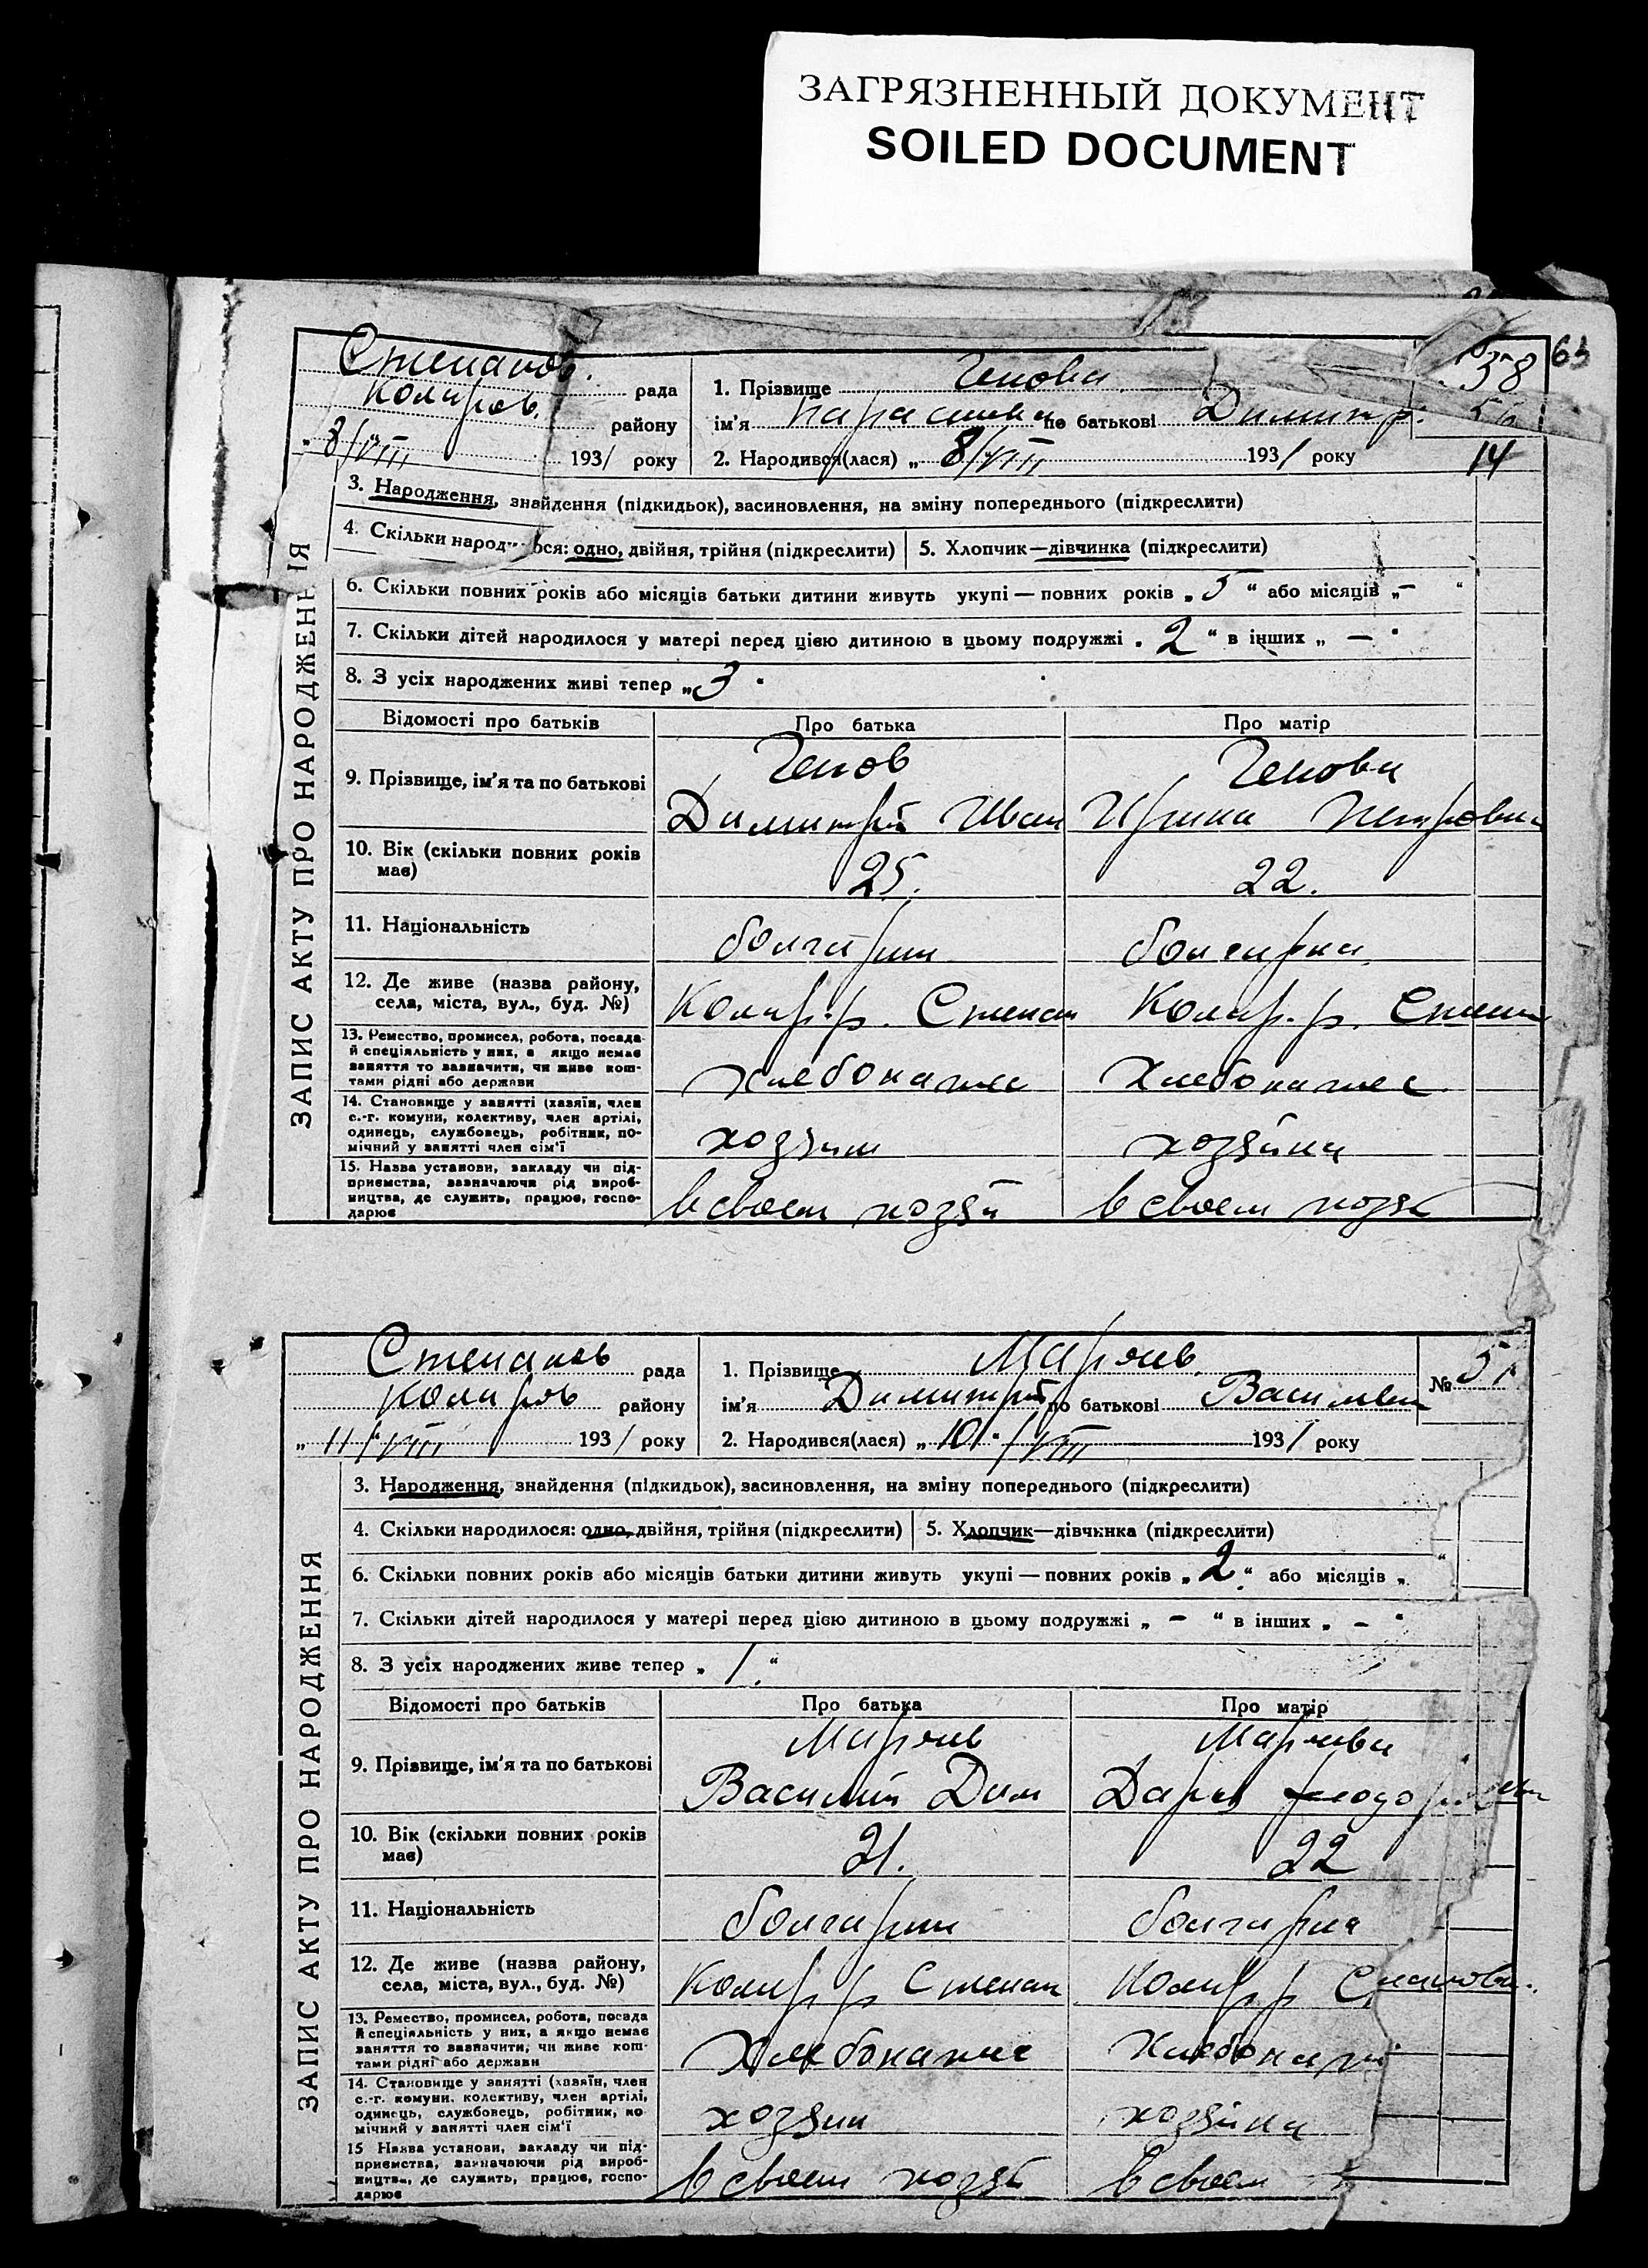 ЗАГРЯЗНЕННЫЙ ДОКУМЕНТ
SOILED DOCUMENT
63
Степанов. рада
Коларов. району
„8/VIII 1931 року
1. Прізвище Генова
58
ім'я Парасковия по батькові Димитр.
2. Народився(лася) „ 8/VIII 1931 року
14
3. Народження, знайдення (підкидьок), засиновлення, на зміну попереднього (підкреслити)
4. Скільки народ ося: одно, двійня, трійня (підкреслити) 5. Хлопчик—дівчинка (підкреслити)
6. Скільки повних років або місяців батьки дитини живуть укупі — повних років „ 5 “ або місяців „ –  “
7. Скільки дітей народилося у матері перед цією дитиною в цьому подружжі „ 2 “ в інших „ — “
8. З усіх народжених живі тепер „ 3 “
Відомості про батьків Про батька Про матір
9. Прізвище, ім'я та по батькові
Генов Генова
Димитрий Иван Ирина Петровна
10. Вік (скільки повних років
має)
25. 22.
11. Національність
болгарин болгарка
12. Де живе (назва району,
села, міста, вул., буд. №)
Колар. р. Степан Колар. р. Степан
13. Ремество, промисел, робота, посада
й спеціяльність у них, а якщо немає
заняття то зазначити, чи живе кош-
тами рідні або держави
Хлебопашес Хлебопашес
14. Становище у занятті (хазяїн, член
с.-г. комуни, колективу, член артілі,
одинець, службовець, робітник, по-
мічний у занятті член сім'ї
хозяин хозяйка
15. Назва установи, закладу чи під-
приємства, зазначаючи рід вироб-
ництва, де служить, працює, госпо-
дарює
в своем хозяй в своем хозя
ЗАПИС АКТУ ПРО НАРОДЖЕННЯ
Степанов рада
Коларов району
„ 11/VIII 1931 року
1. Прізвище
№ 51
ім'я Димитрий по батькові Василевич
2. Народився(лася) „ 10 “/VIII 1931 року
3. Народження, знайдення (підкидьок), засиновлення, на зміну попереднього (підкреслити)
4. Скільки народилося: одно, двійня, трійня (підкреслити) 5. Хлопчик—дівчинка (підкреслити)
6. Скільки повних років або місяців батьки дитини живуть укупі — повних років „ 2 “ або місяців „ “
7. Скільки дітей народилося у матері перед цією дитиною в цьому подружжі „ – “ в інших „ – “
8. З усіх народжених живе тепер „ 1 “
Відомості про батьків Про батька Про матір
9. Прізвище, ім'я та по батькові
Василий Дим Дарья Феодор
10. Вік (скільки повних років
має)
21. 22
11. Національність
болгарин болгарка
12. Де живе (назва району,
села, міста, вул., буд. №)
Колар р Степан Колар р Степановк.
13. Ремество, промисел, робота, посада
й спеціяльність у них, а якщо немає
заняття то зазначити, чи живе кош-
тами рідні або держави
Хлебопашес Хлебопаш
14. Становище у занятті (хазяїн, член
с.-г. комуни, колективу, член артілі,
одинець, службовець, робітник, по
мічний у занятті член сім'ї
хозяин хозяйка
15 Назва установи, закладу чи під-
приємства, зазначаючи рід вироб-
ництва, де служить, працює, госпо-
дарює
в своем хозяй в своем
ЗАПИС АКТУ ПРО НАРОДЖЕННЯ